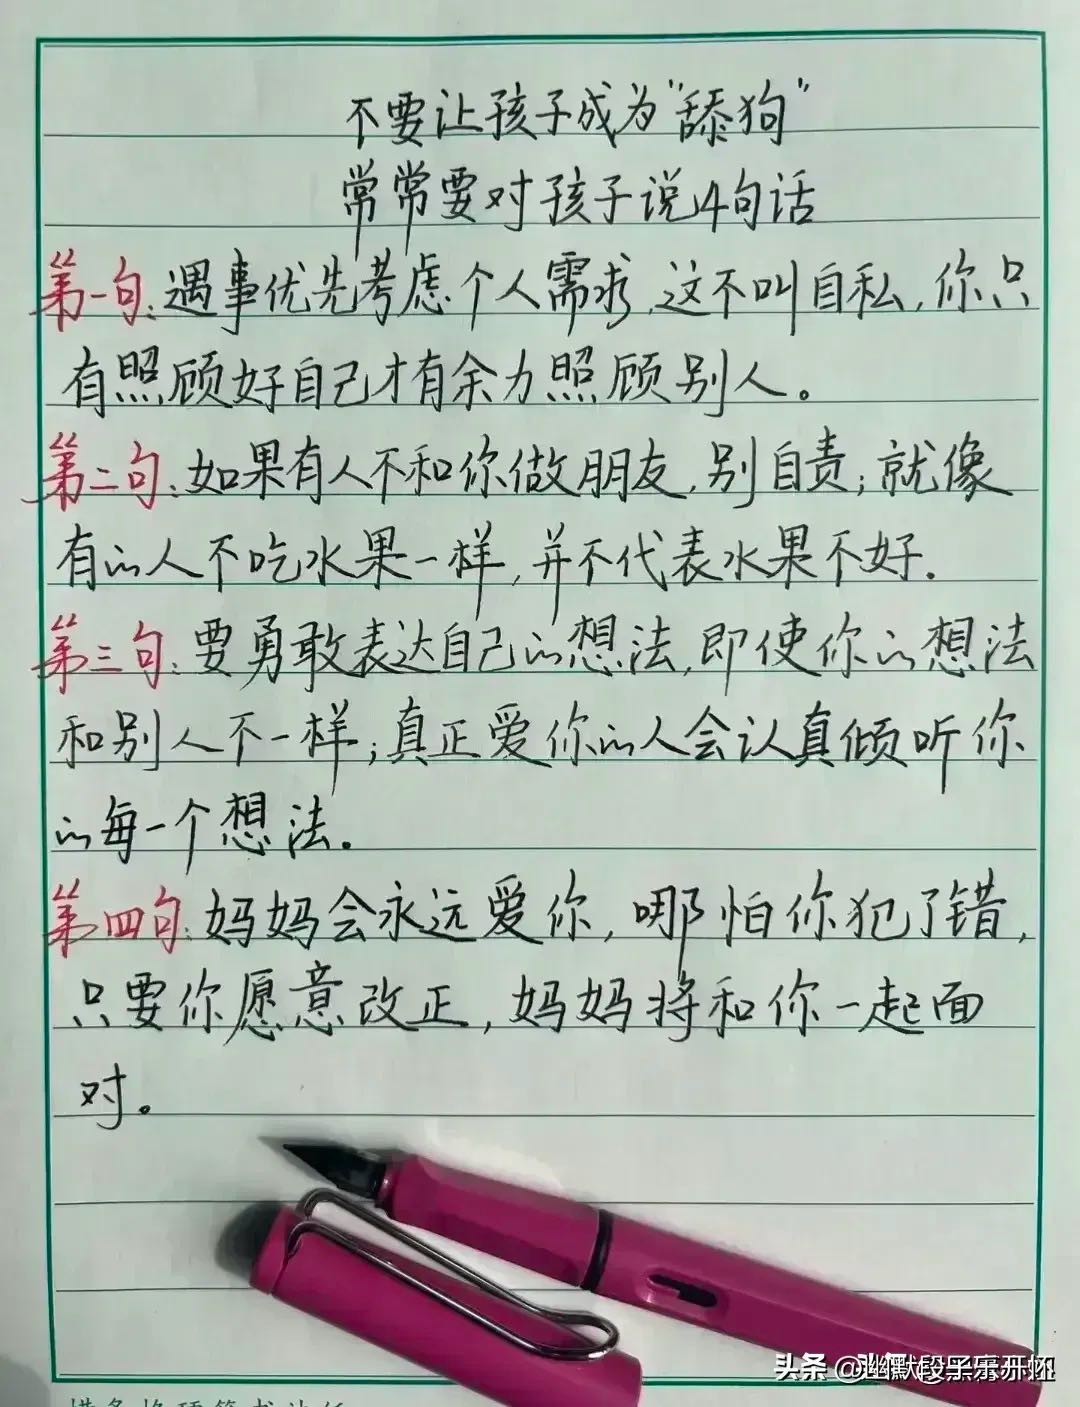 不要让孩子成为"舔狗"
常常要对孩子说4句话
第一句:遇事优先考虑个人需求,这不叫自私,你只
有照顾好自己才有余力照顾别人。
第二句:如果有人不和你做朋友,别自责;就像
有的人不吃水果一样,并不代表水果不好.
第三句:要勇敢表达自己的想法,即使你的想法
和别人不一样;真正爱你的人会认真倾听你
的每一个想法.
第四句:妈妈会永远爱你,哪怕你犯了错,
只要你愿意改正,妈妈将和你一起面
对。
头条